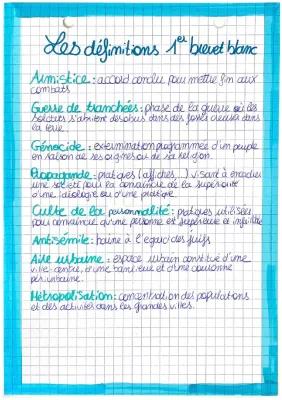 Les définitions 1er brevet blanc
Armistice : accord conclu pour mettre fin aux
combats.
Guerre de tranchées : phase de la guerre où les
soldats s'abritent des obus dans des fossés creusés dans
la terre.
Génocide : extermination programmée d'un peuple
en raison de ses origines ou de sa religion.
Propagande : pratiques (affiches...) visant à encadrer
une société pour la convaincre de la supériorité
d'une idéologie ou d'une pratique.
Culte de la personnalité : pratiques utilisées
pour convaincre qu'une personne est supérieure et infaillible
Antisémite : haine à l'égard des juifs
Aire urbaine : espace urbain constitué d'une
ville-centre, d'une banlieue et d'une couronne
périurbaine.
Métropolisation : concentration des populations
et des activités dans les grandes villes.